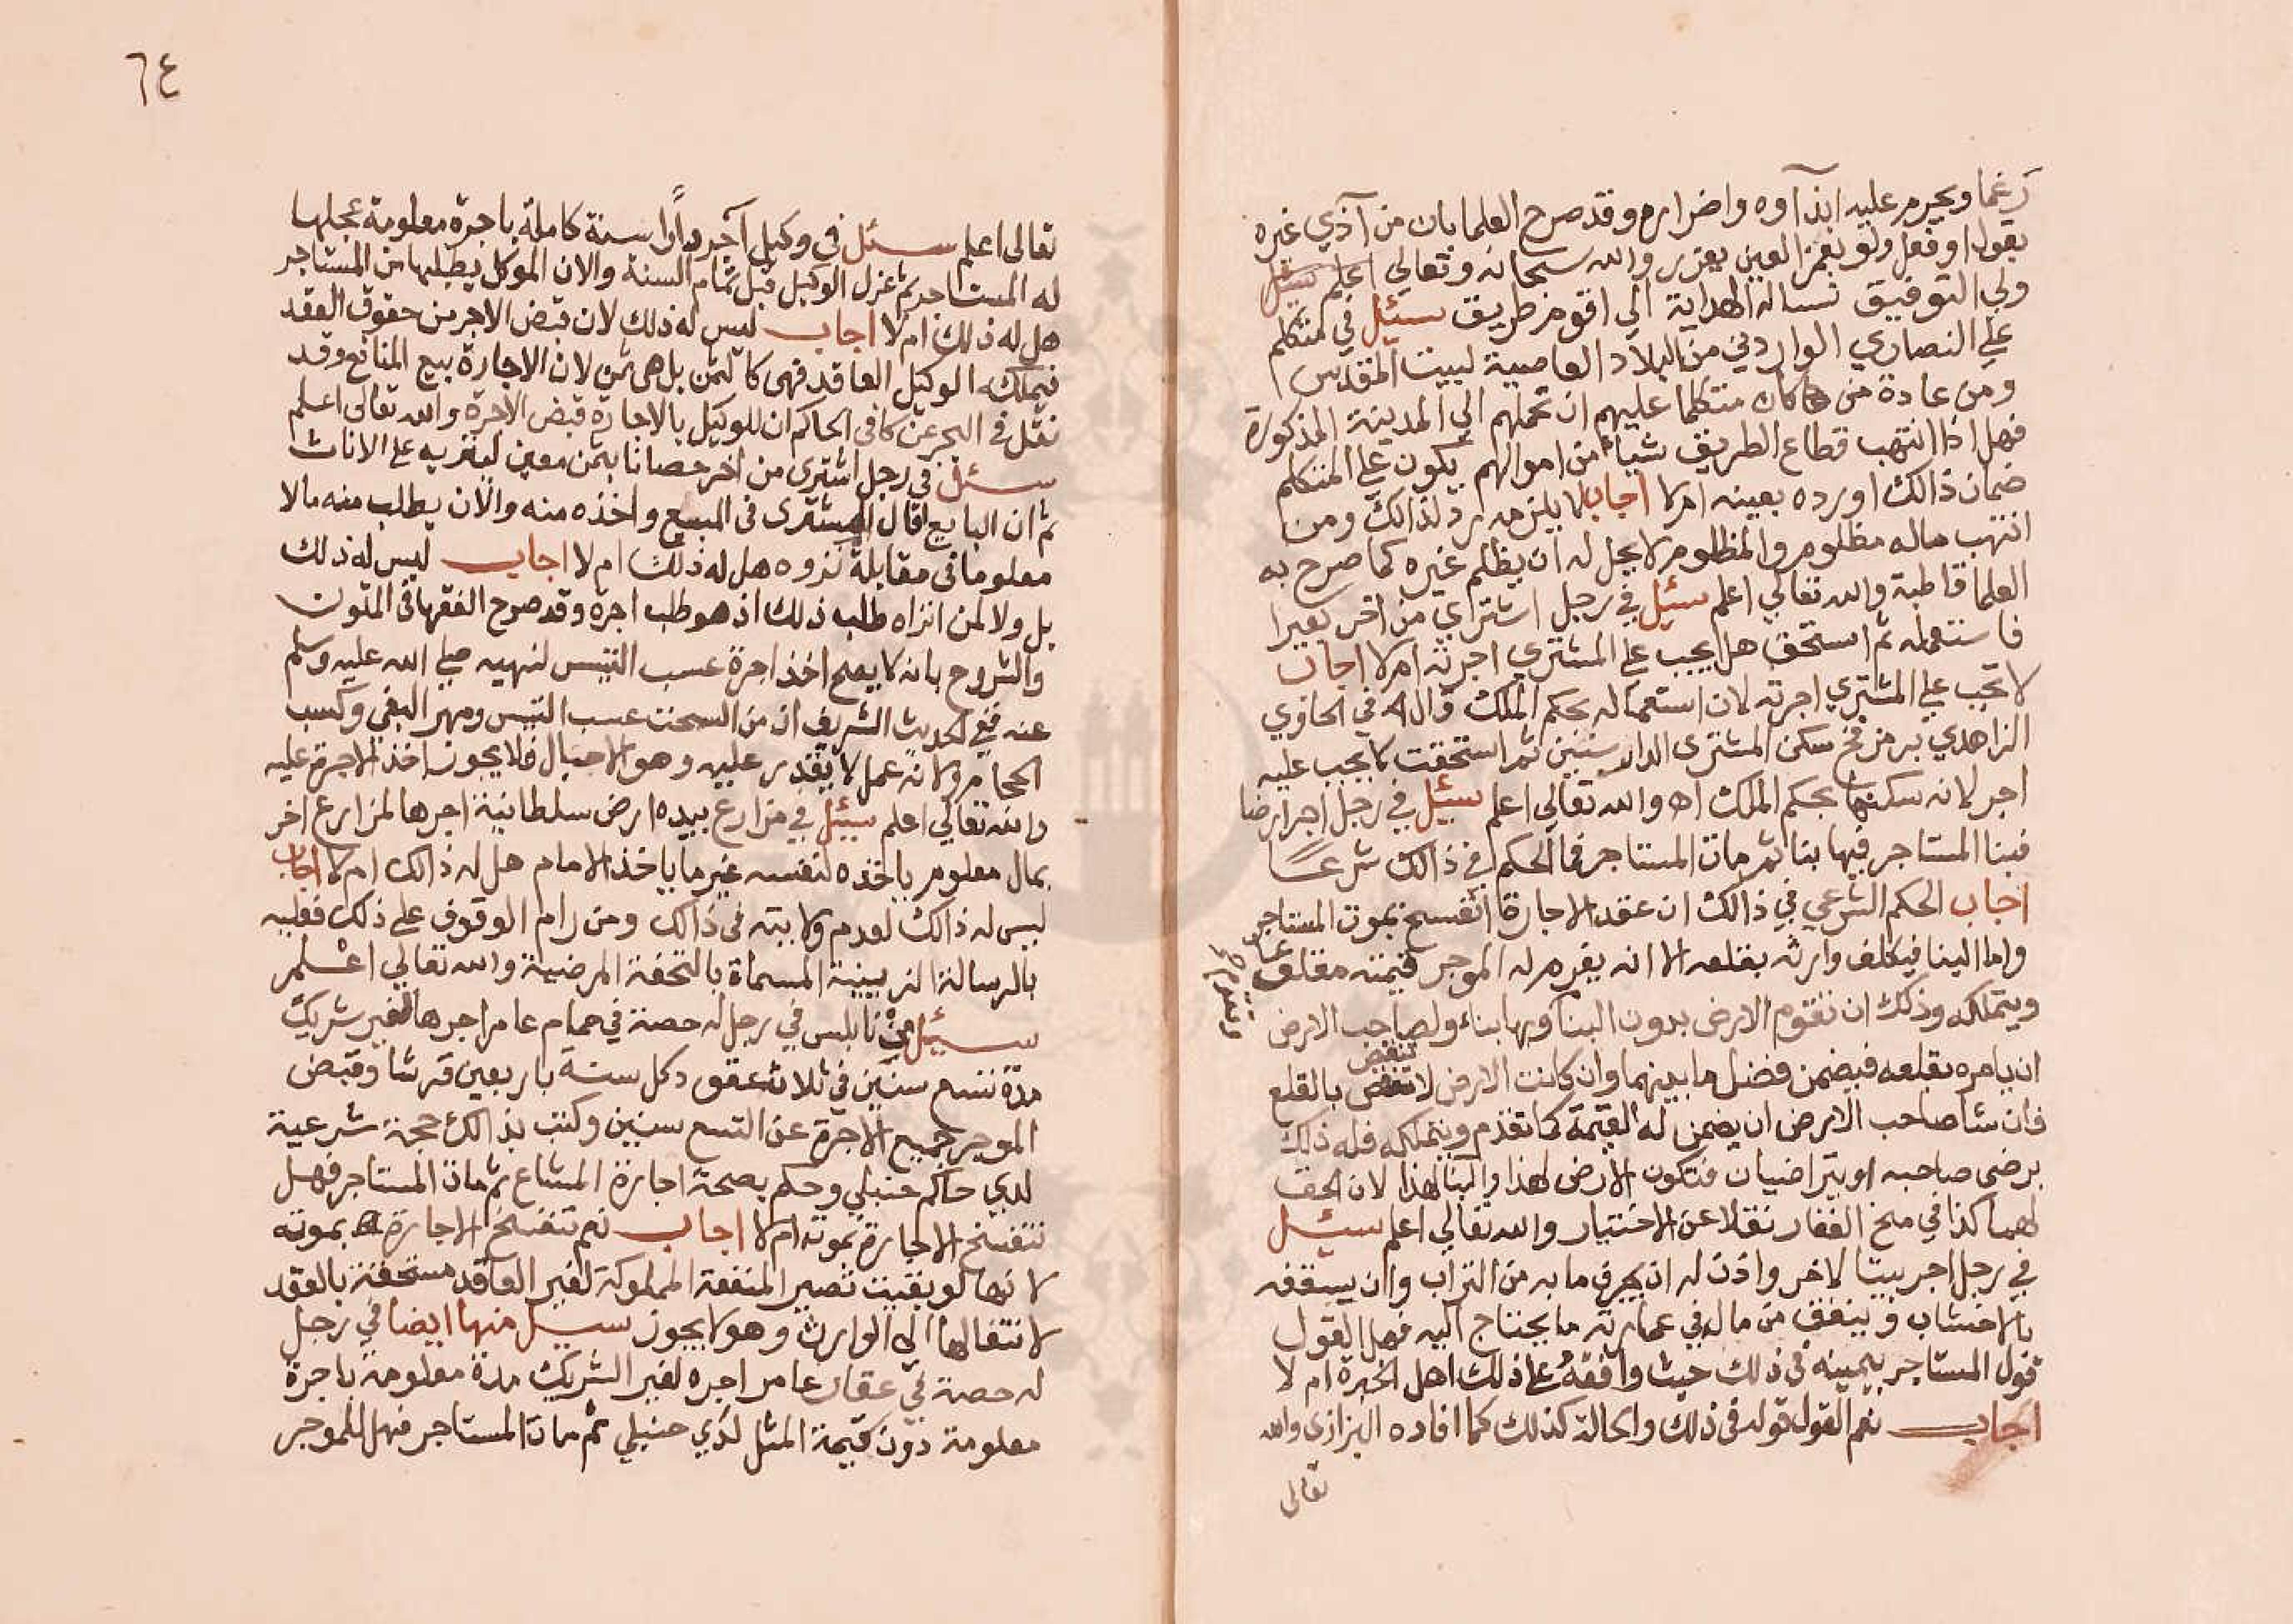 زغما ويحرم عليه ايذآوه واضراره وقد صرح العلما بان من آذي غيره
بقول او فعل ولو بغمز العين يعزر والله سبحانه وتعالي اعلم سئيل
ولي التوفيق نساله الهداية الي اقوم طريق سئيل في متكلم
علي النصاري الواردين من البلاد العاصية لبيت المقدس
ومن عادة من كان متكلما عليهم ان تحملهم الي المدينة المذكورة
فهل اذا انتهب قطاع الطريق شيا من اموالهم يكون علي المتكلم
ضمان ذالك او رده بعينه ام لا اجاب لا يلزمه رد لذالك ومن
انتهب ماله مظلوم والمظلوم لا يحل له ان يظلم غيره كما صرح به
العلما قاطبة والله تعالي اعلم سئيل في رجل اشتراي من اخر بعيرا
فاستعمله ثم استحق هل يجب علي المشتري اجرته ام لا اجاب
لا تجب علي المشتري اجرته لان استعماله بحكم الملك قال في الحاوي
الزاهدي برمز فخ سكن المشتري الدار سنين ثم استحقت لا يجب عليه
اجر لانه سكنها بحكم الملك اه والله تعالي اعلم سئيل في رجل اجر ارضا
فبنا المستاجر فيها بنا ثم مات المستاجر فما الحكم في ذالك شرعا
اجاب الحكم الشرعي في ذالك ان عقد الاجارة انفسخ بموت المستاجر
واما البنا فيكلف وارثه بقلعه الا انه يغرم له الموجر قيمته مقلوعا
ويتملكه وذلك ان تقوم الارض بدون البنا وبها بناء ولصاحب الارض
ان يامره بقلعه فيضمن فضل ما بينهما وان كانت الارض لا تنقص بالقلع
تنقص
فان شا صاحب الارض ان يضمن له القيمة كما تقدم ويتملكه فله ذلك
برضى صاحبه او يتراضيان فتكون الارض لهذا والبنا لهذا لان الحق
لهما كذا في منح الغفار نقلا عن الاختيار والله تعالي اعلم سئيل
في رجل اجر بيتا لاخر واذن له ان يجرف ما به من التراب وان يسقفه
بالاخشاب وينفق من ماله في عمارته ما يحتاج اليه فهل القول
قول المستاجر بيمينه في ذلك حيث وافقه على ذلك اهل الخبرة ام لا
اجاب نعم القول قوله فى ذلك والحالة كذلك كما افاده البزازى والله
تعالى
٦٤
تعالى اعلم سئل فى وكيل آجر دارا سنة كاملة باجرة معلومة عجلها
له المستاجر ثم عزل الوكيل قبل تمام السنة والان الموكل يطلبها من المستاجر
هل له ذلك ام لا اجاب ليس له ذلك لان قبض الاجر من حقوق العقد
فيملكه الوكيل العاقد فهى كالثمن بل هى ثمن لان الاجارة بيع المنافع وقد
نقل فى البحر عن كافى الحاكم ان للوكيل بالاجارة قبض الاجرة والله تعالى اعلم
سئل في رجل اشترى من اخر حصانا بثمن معين لينزيه على الاناث
ثم ان البايع اقال المشترى فى المبيع واخذه منه والان يطلب منه مالا
معلوما فى مقابلة نزوه هل له ذلك ام لا اجاب ليس له ذلك
بل ولا لمن انزاه طلب ذلك اذ هو طلب اجرة وقد صرح الفقها فى المتون
والشروح بانه لا يصح اخذ اجرة عسب التيس لنهيه صلي الله عليه وسلم
عنه ففي الحديث الشريف ان من السحت عسب التيس ومهر البغي وكسب
الحجام ولانه عمل لا يقدر عليه وهو الاحبال فلا يجوز اخذ الاجرة عليه
والله تعالي اعلم سئيل في مزارع بيده ارض سلطانية اجرها لمزارع اخر
بمال معلوم ياخذه لنفسه غير ما ياخذ الامام هل له ذالك ام لا اجاب
ليس له ذالك لعدم ولايته فى ذالك ومن رام الوقوف على ذلك فعليه
بالرسالة الزينية المسماة بالتحفة المرضية والله تعالي اعلم
سئيل من نابلس في رجل له حصة في حمام عامر اجرها لغير شريك
مدة تسع سنين في ثلاث عقود كل سنة باربعين قرشا وقبض
الموجر جميع الاجرة عن التسع سنين وكتب بذالك حجة شرعية
لدي حاكم حنبلي وحكم بصحة اجارة المشاع ثم مات المستاجر فهل
تنفسخ الاجارة بموته ام لا اجاب نعم تنفسخ الاجارة بموته
لانها لو بقيت تصير المنفعة المملوكة لغير العاقد مستحقة بالعقد
لانتقالها الي الوارث وهو لا يجوز سيل منها ايضا في رجل
له حصة في عقار عامر اجره لغير الشريك مدة معلومة باجرة
معلومة دون قيمة المثل لدي حنبلي ثم مات المستاجر فهل للموجر